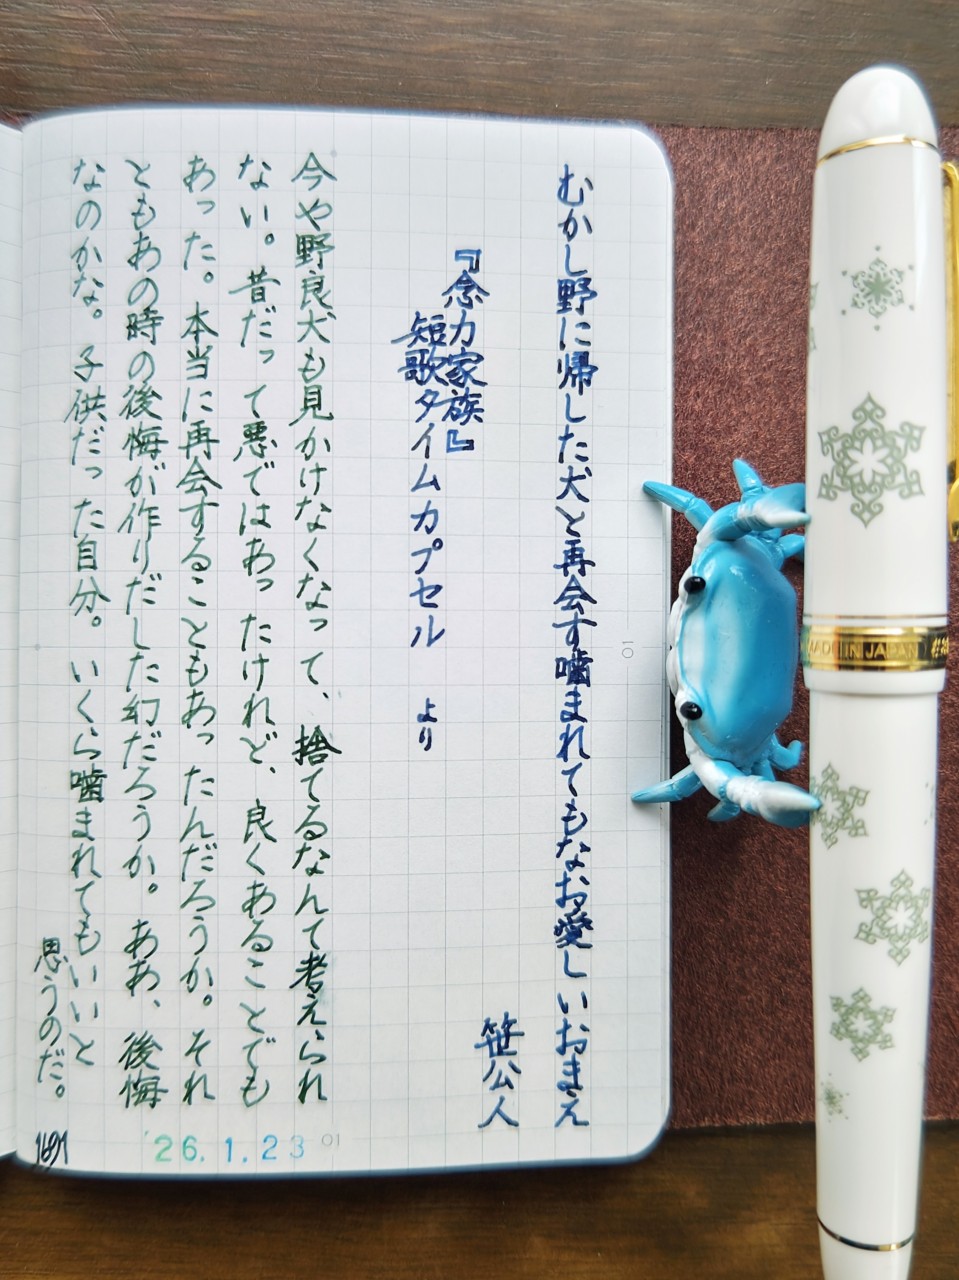 むかし野に帰した犬と再会す噛まれてもなお愛しいおまえ
笹公人
『念力家族』
短歌タイムカプセル より
今や野良犬も見かけなくなって、捨てるなんて考えられ
ない。昔だって悪ではあったけれど、良くあることでも
あった。本当に再会することもあったんだろうか。それ
ともあの時の後悔が作りだした幻だろうか。ああ、後悔
なのかな。子供だった自分。いくら噛まれてもいいと
思うのだ。
1691
'26.1.23
01
01
MADE IN JAPAN